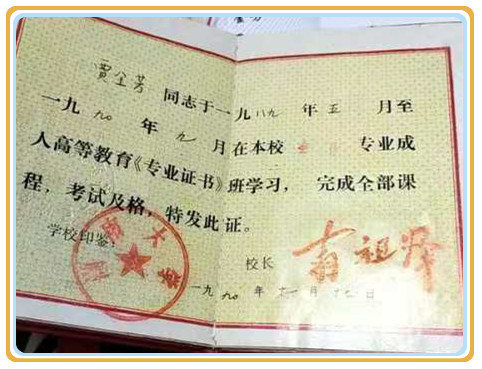 贾全芳 同志于一九八九年五月至
一九九〇年九月在本校 专业成
人高等教育《专业证书》班学习，完成全部课
程，考试及格，特发此证。
学校印鉴：
校长
一九九〇年十一月十七日